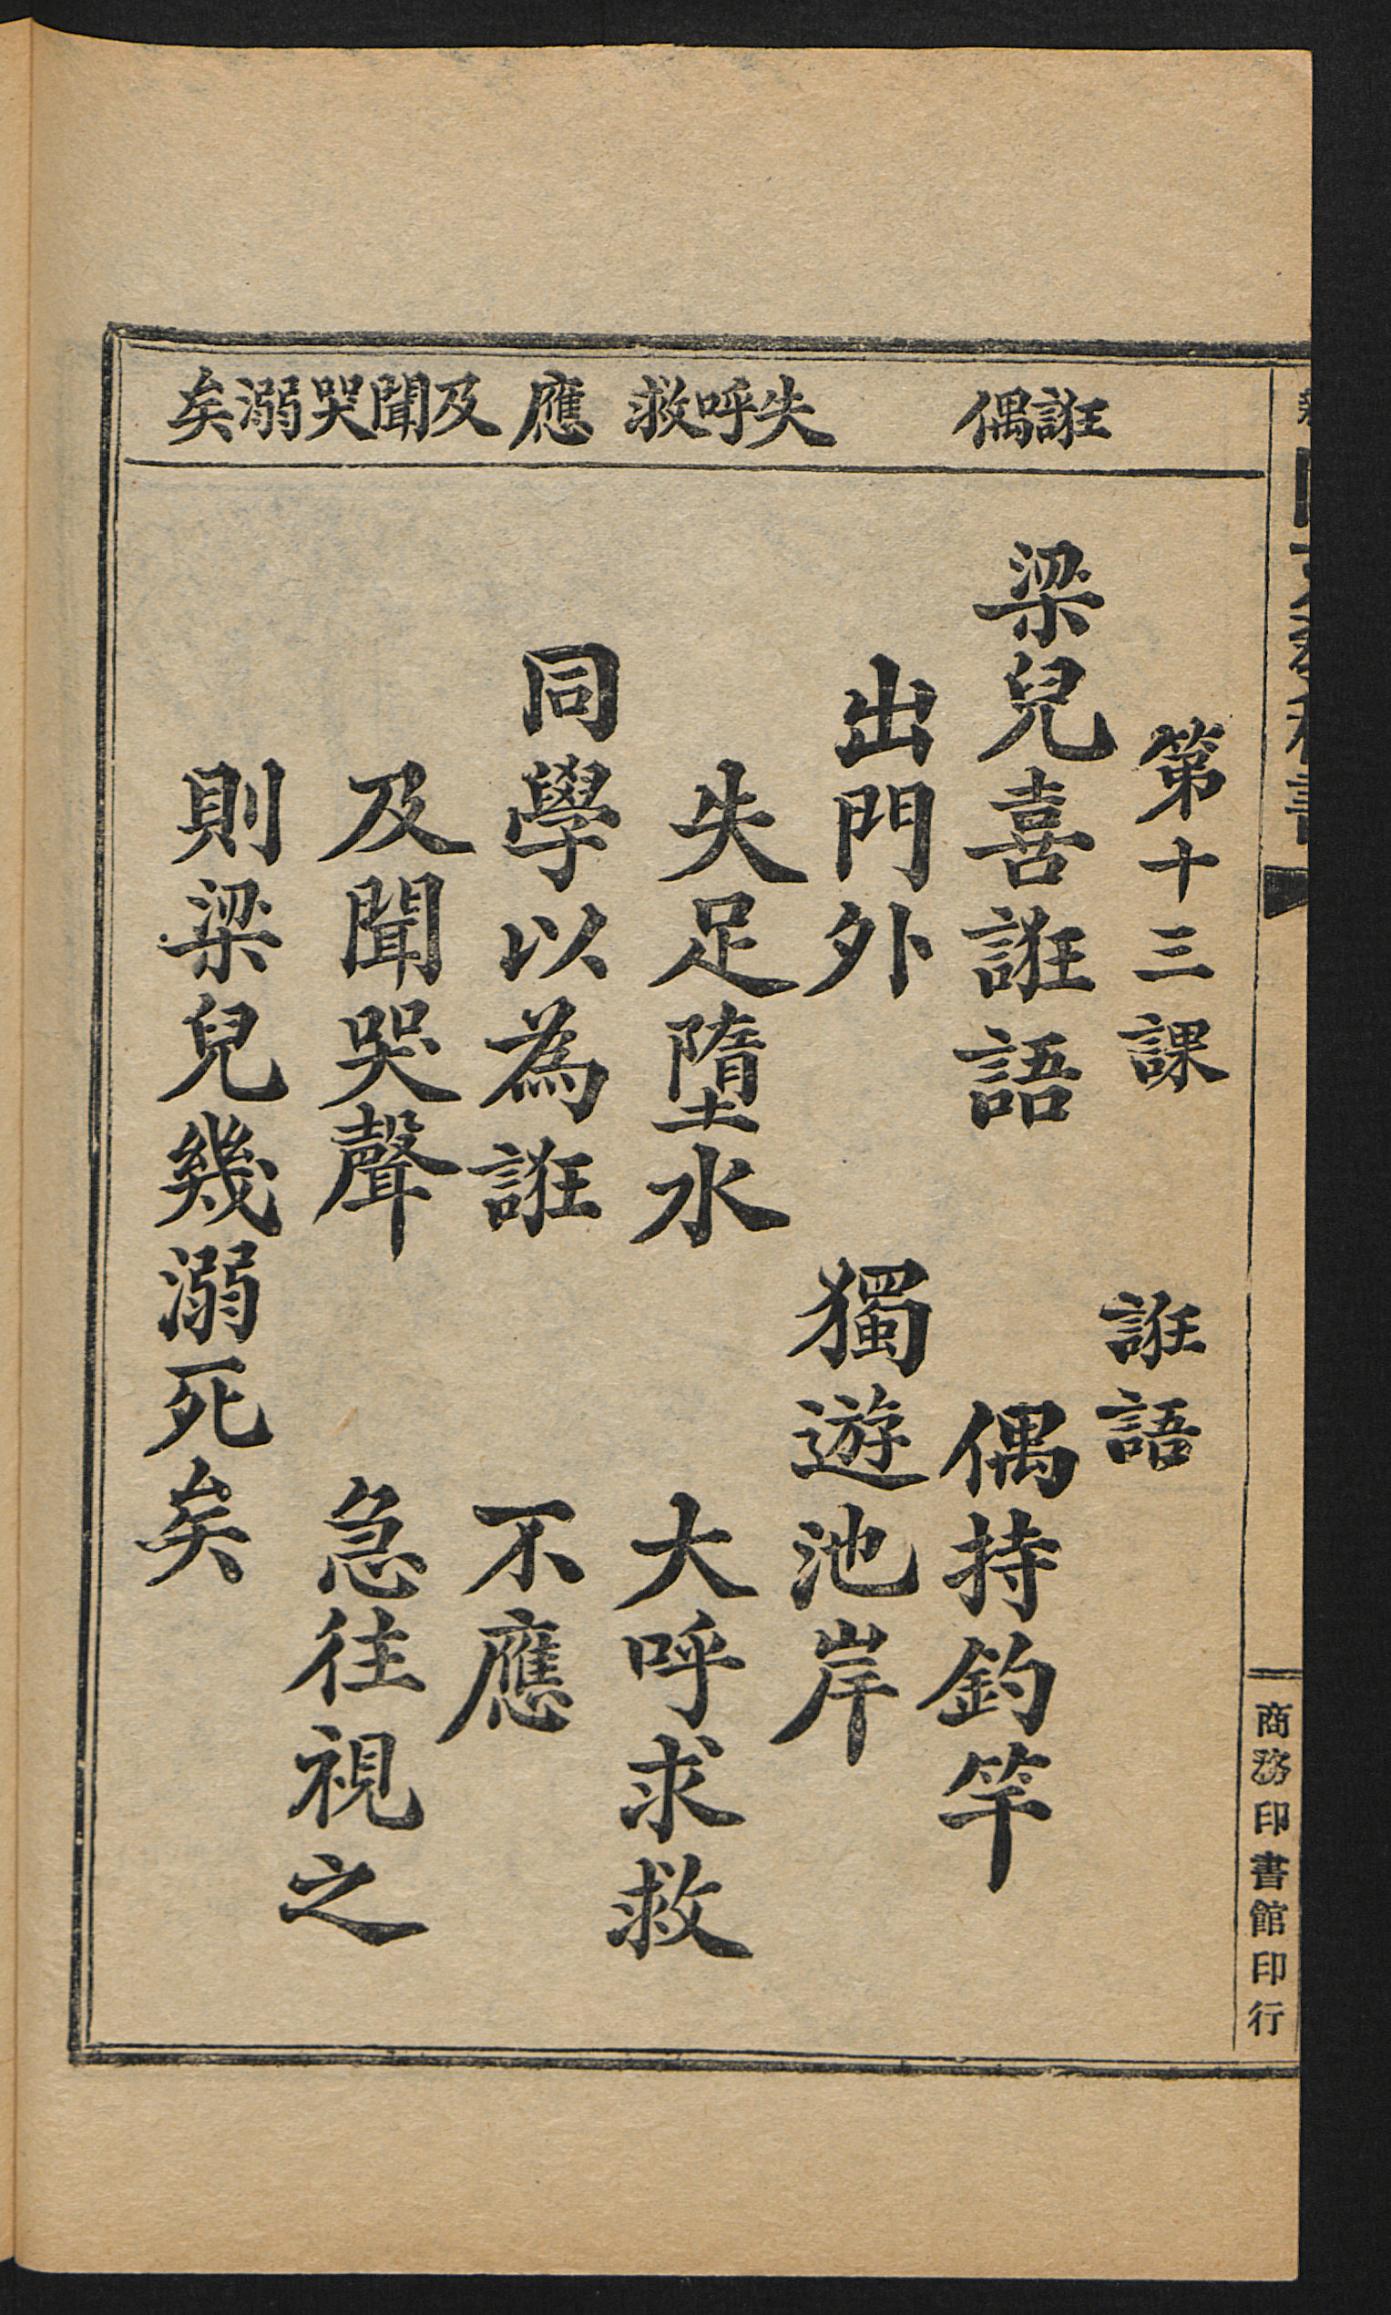 誑偶
失呼救
應
及聞哭溺矣
第十三課　誑語
梁兒喜誑語　偶持釣竿
出門外　獨遊池岸
失足墮水　大呼求救
同學以為誑　不應
及聞哭聲　急往視之
則梁兒幾溺死矣
商務印書館印行